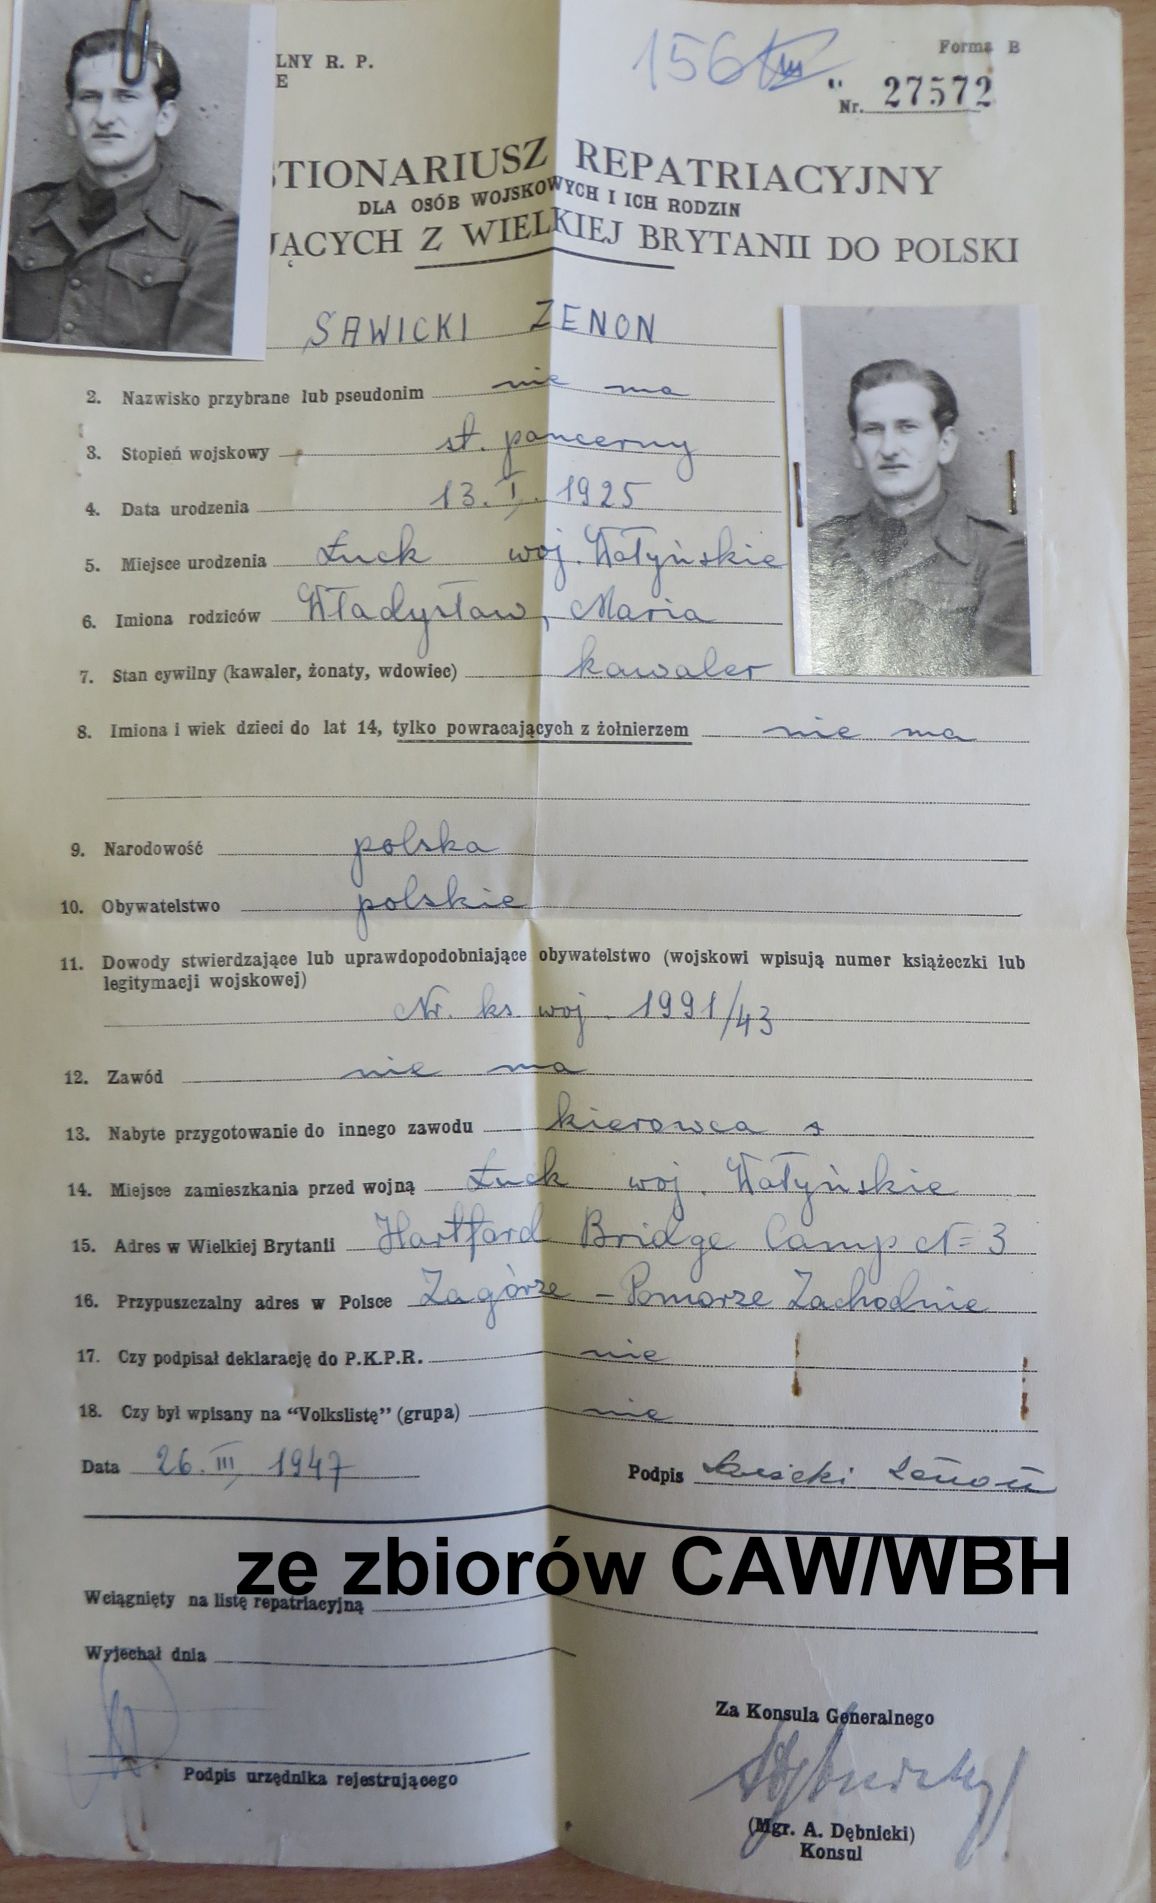 LNY R. P.
E
156
Forma B
Nr. 27572
STIONARIUSZ REPATRIACYJNY
DLA OSÓB WOJSKOWYCH I ICH RODZIN
JĄCYCH Z WIELKIEJ BRYTANII DO POLSKI
SAWICKI ZENON
2. Nazwisko przybrane lub pseudonim nie ma
3. Stopień wojskowy st. pancerny
4. Data urodzenia 13. I. 1925
5. Miejsce urodzenia Łuck woj. Wołyńskie
6. Imiona rodziców Władysław, Maria
7. Stan cywilny (kawaler, żonaty, wdowiec) kawaler
8. Imiona i wiek dzieci do lat 14, tylko powracających z żołnierzem nie ma
9. Narodowość polska
10. Obywatelstwo polskie
11. Dowody stwierdzające lub uprawdopodobniające obywatelstwo (wojskowi wpisują numer książeczki lub
legitymacji wojskowej)
Nr. ks. woj. 1991/43
12. Zawód nie ma
13. Nabyte przygotowanie do innego zawodu kierowca
14. Miejsce zamieszkania przed wojną Łuck woj. Wołyńskie
15. Adres w Wielkiej Brytanii Hartford Bridge Camp N= 3
16. Przypuszczalny adres w Polsce Zagórze – Pomorze Zachodnie
17. Czy podpisał deklarację do P.K.P.R. nie
18. Czy był wpisany na "Volkslistę" (grupa) nie
Data 26. III. 1947 Podpis Sawicki Zenon
ze zbiorów CAW/WBH
Wciągnięty na listę repatriacyjną
Wyjechał dnia
Za Konsula Generalnego
Podpis urzędnika rejestrującego
(Mgr. A. Dębnicki)
Konsul